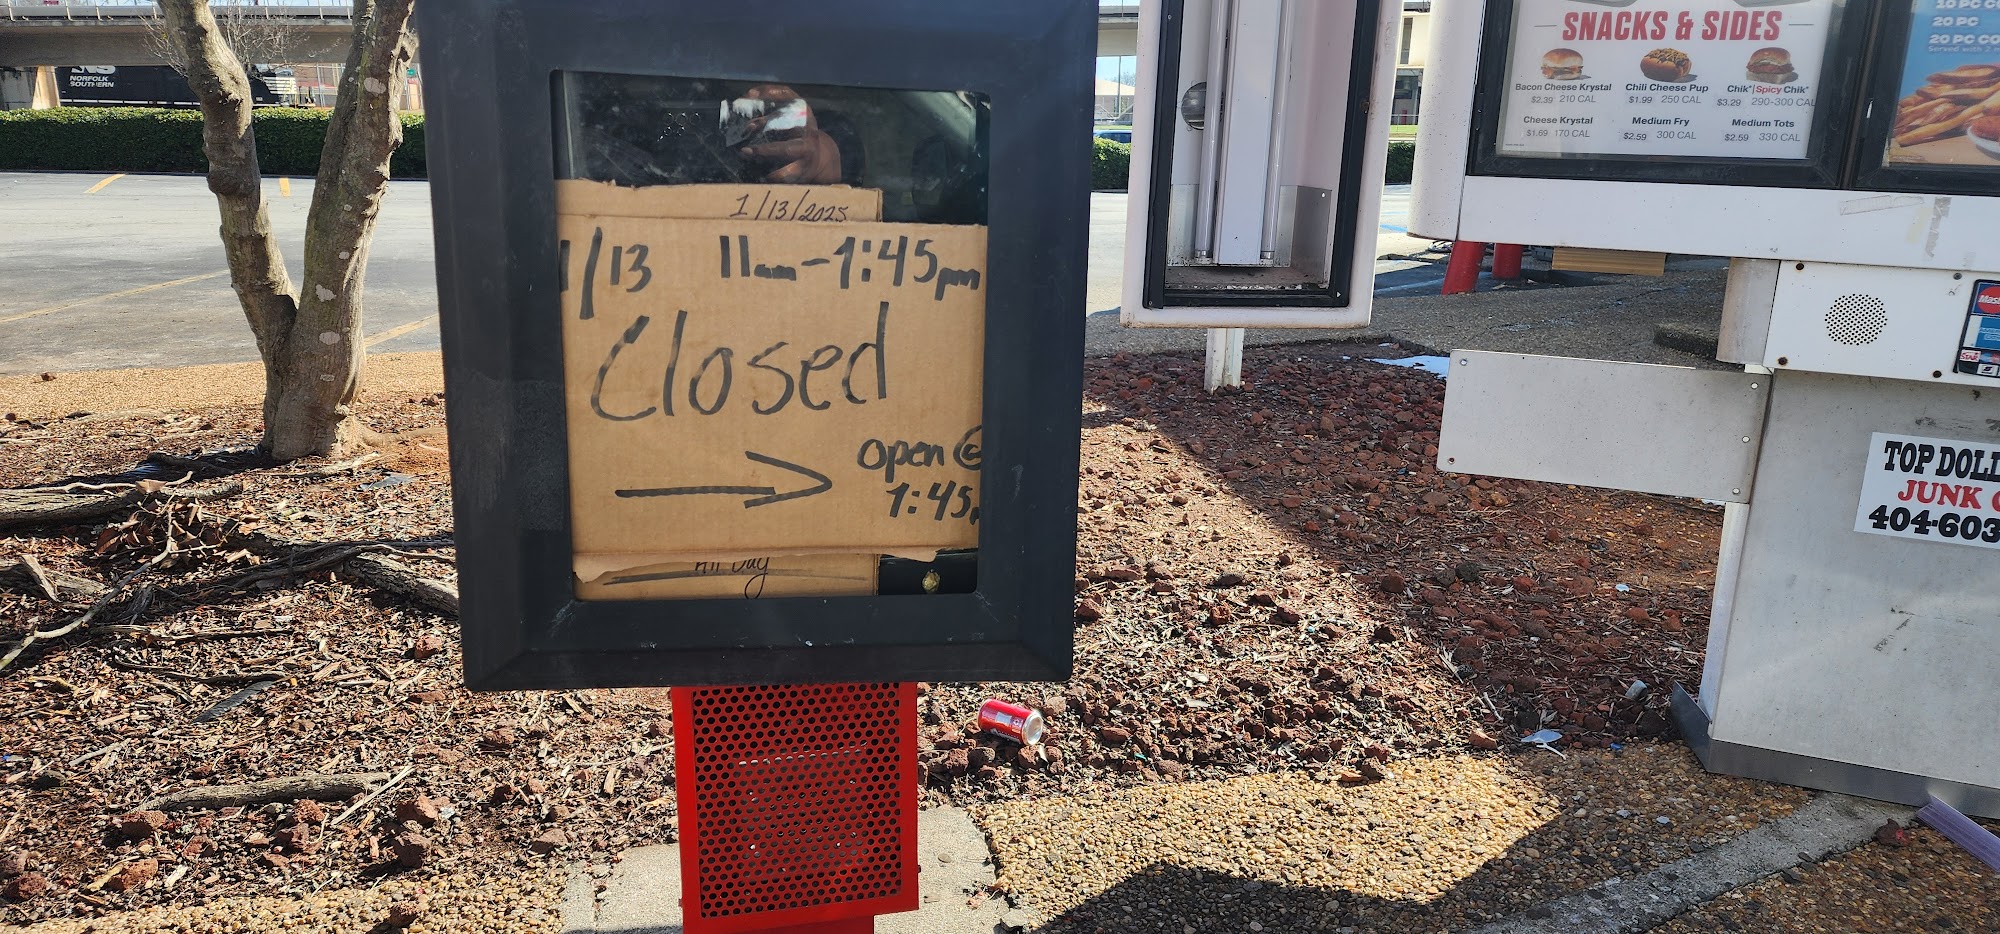 NORFOLK
SOUTHERN
1/13/2025
1/13 11am-1:45pm
Closed
open @
1:45
All Day
SNACKS & SIDES
Bacon Cheese Krystal
$2.39 210 CAL
Chili Cheese Pup
$1.99 250 CAL
Chik*|Spicy Chik*
$3.29 290-300 CAL
Cheese Krystal
$1.69 170 CAL
Medium Fry
$2.59 300 CAL
Medium Tots
$2.59 330 CAL
10 PC
20 PC
20 PC
Served with 2
TOP DOLL
JUNK
404-603